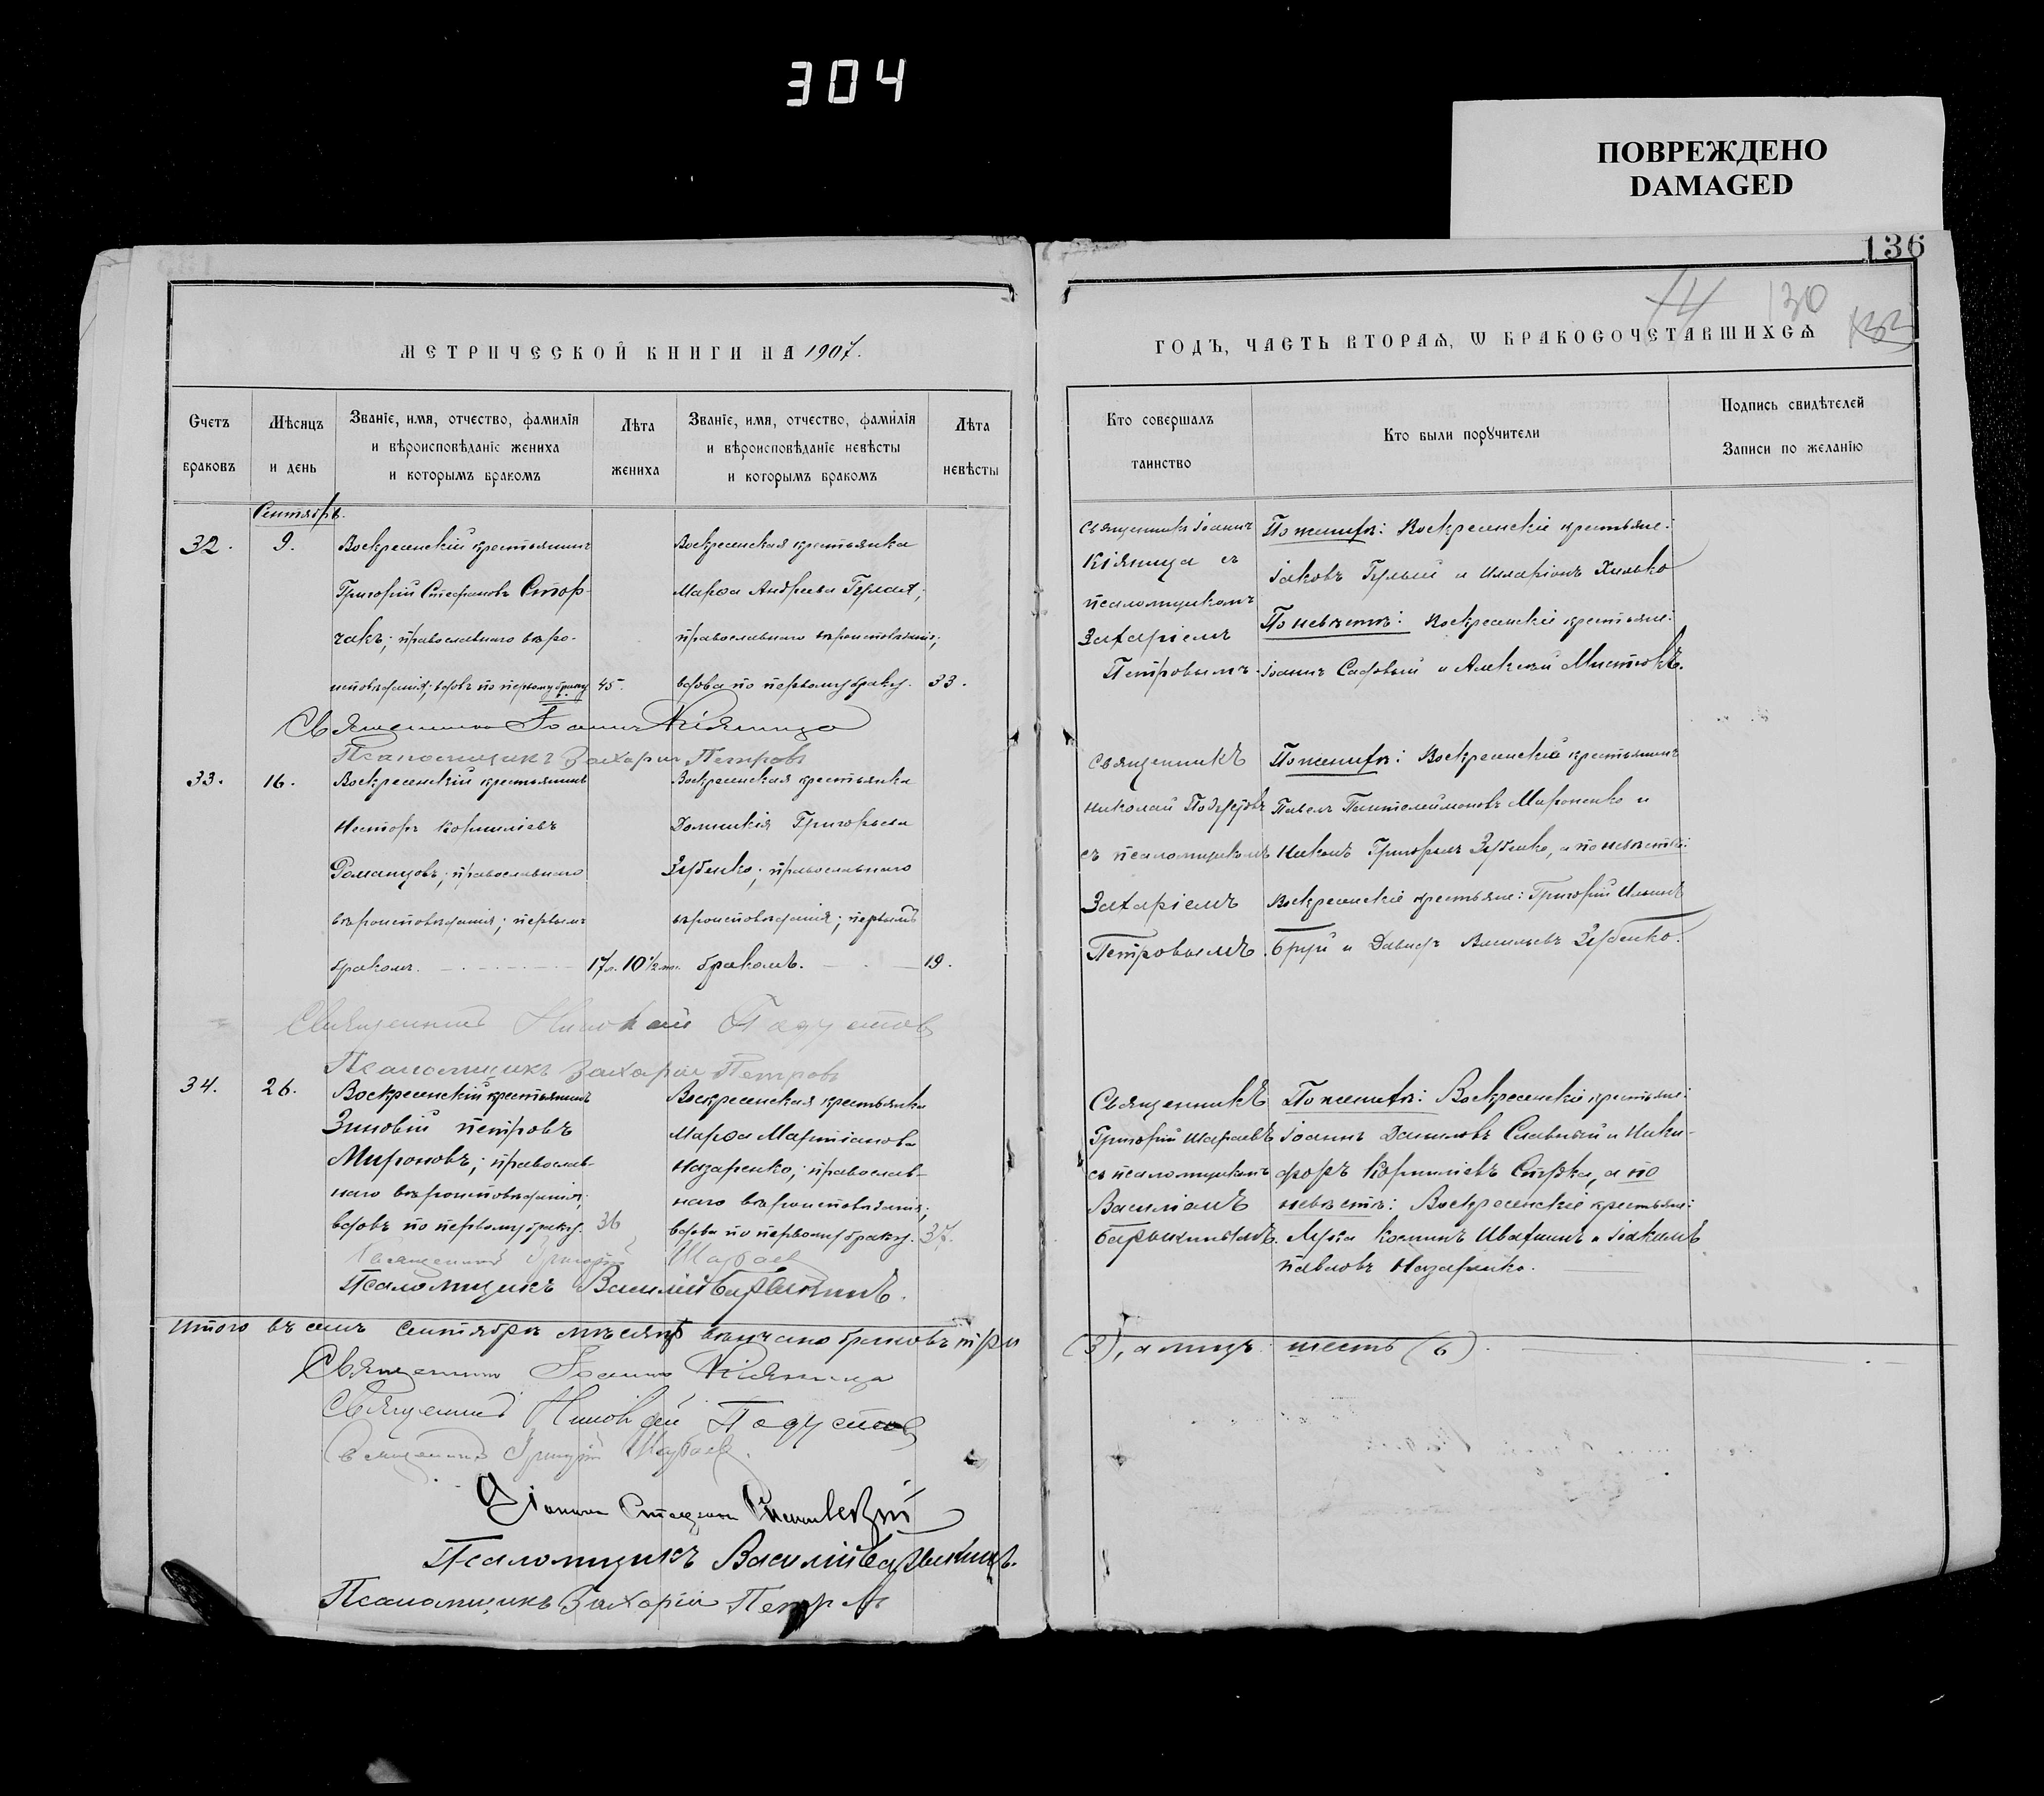 304
ПОВРЕЖДЕНО
DAMAGED
136
130
МЕТРИЧЕСКОЙ КНИГИ НА 1907.
ГОДЪ, ЧАСТЬ ВТОРАѦ, Ѡ БРАКОСОЧЕТАВШИХСѦ
Счетъ браковъ
Мѣсяцъ и день
Званіе, имя, отчество, фамилія и вѣроисповѣданіе жениха и которымъ бракомъ
Лѣта жениха
Званіе, имя, отчество, фамилія и вѣроисповѣданіе невѣсты и которымъ бракомъ
Лѣта невѣсты
Кто совершалъ таинство
Кто были порꙋчители
Подпись свидѣтелей
Записи по желанію
Сентябрь.
32.
9.
Воскресенскій крестьянинъ
Григорій Стефановъ Стор-
чакъ; православнаго вѣро-
исповѣданія; вдовъ по первому браку
45.
Воскресенская крестьянка
Марѳа Андреева
православнаго вѣроисповѣданія;
вдова по первому браку.
33.
Священникъ Іоаннъ
Кіяница съ
псаломщикомъ
Захаріемъ
Петровымъ.
По женихѣ: Воскресенскіе крестьяне:
Іаковъ и Илларіонъ Хилько
По невѣстѣ: Воскресенскіе крестьяне:
Іоаннъ Садовый и Алексѣй
Священникъ Іоаннъ Кіяница
Псаломщикъ Захарій Петровъ
33.
16.
Воскресенскій крестьянинъ
Несторъ Корниліевъ
Романцовъ; православнаго
вѣроисповѣданія; первымъ
бракомъ.
17 л. 10 1/2 м.
Воскресенская крестьянка
Домникія Григорьева
Зубенко; православнаго
вѣроисповѣданія; первымъ
бракомъ.
19.
Священникъ
Николай
съ псаломщикомъ
Захаріемъ
Петровымъ.
По женихѣ: Воскресенскіе крестьянинъ
Павелъ Пантелеймоновъ Мироненко и
Никонъ Григорьевъ Зубенко, а по невѣстѣ:
Воскресенскіе крестьяне: Григорій Ильинъ
Бруй и Давидъ Васильевъ Зубенко.
Священникъ Николай
Псаломщикъ Захарій Петровъ
34.
26.
Воскресенскій крестьянинъ
Зиновій Петровъ
Мироновъ; православ-
наго вѣроисповѣданія;
вдовъ по первому браку.
36
Воскресенская крестьянка
Марѳа Мартіанова
Назаренко; православ-
наго вѣроисповѣданія;
вдова по первому браку.
37.
Священникъ
Григорій
съ псаломщикомъ
Василіемъ
Барыкинымъ.
По женихѣ: Воскресенскіе крестьяне:
Іоаннъ Даниловъ Славный и Ники-
форъ Корниліевъ а по
невѣстѣ: Воскресенскіе крестьяне:
Лука Косминъ Ивахинъ и Іоакимъ
Павловъ Назаренко.
Священникъ Григорій
Псаломщикъ Василій Барыкинъ.
Итого въ семъ сентябрѣ мѣсяцѣ вѣнчано браковъ три
(3), а лицъ шесть (6).
Священникъ Іоаннъ Кіяница
Священникъ Николай
Священникъ Григорій
Діаконъ Стефанъ
Псаломщикъ Василій Барыкинъ.
Псаломщикъ Захарій Петровъ